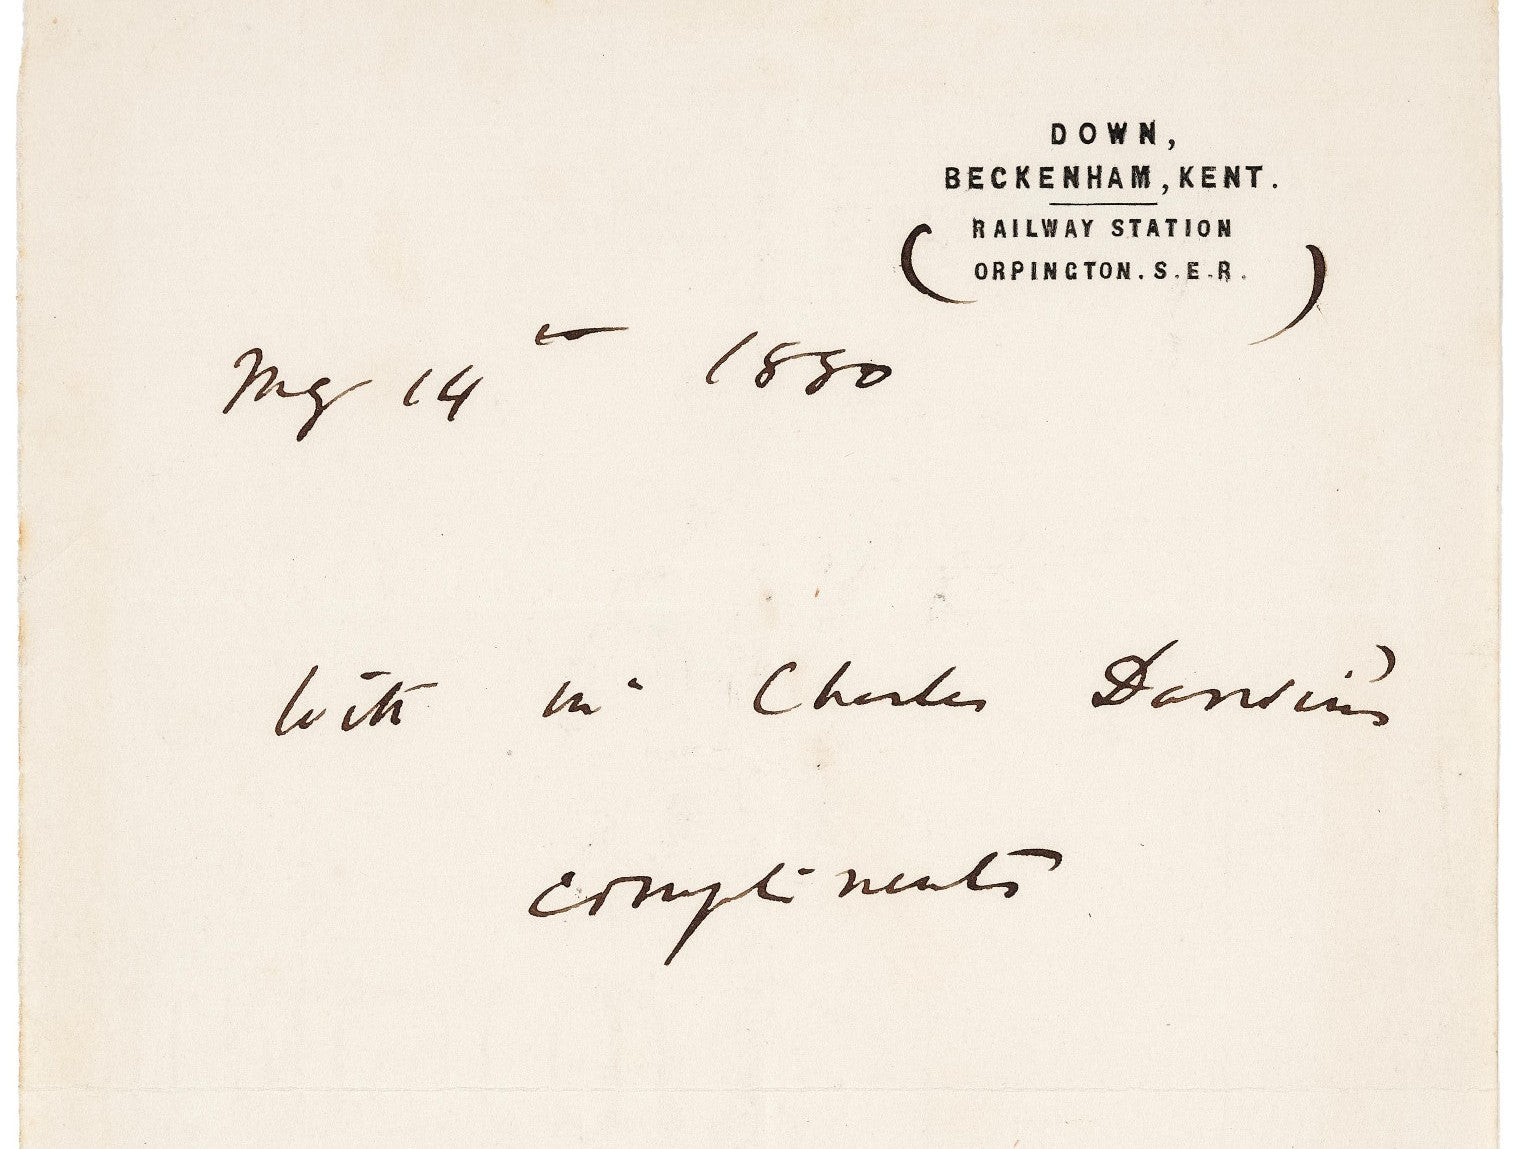 DOWN,
BECKENHAM, KENT.
(RAILWAY STATION
ORPINGTON. S.E.R.)
May 14th 1880
With Mr Charles Darwin's
compliments